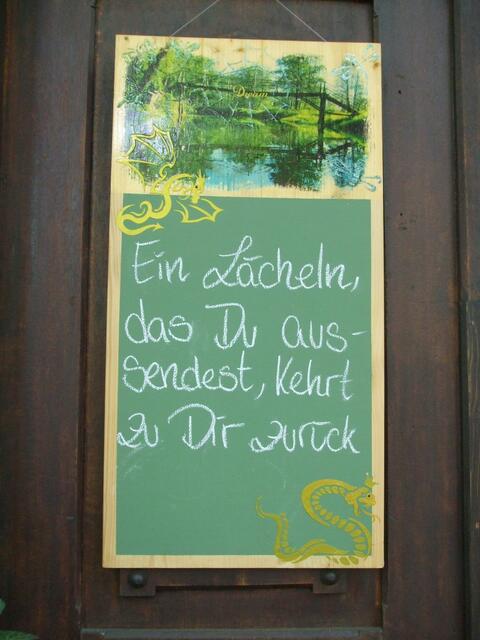 Dream
Ein Lächeln,
das Du aus-
sendest, kehrt
zu Dir zurück